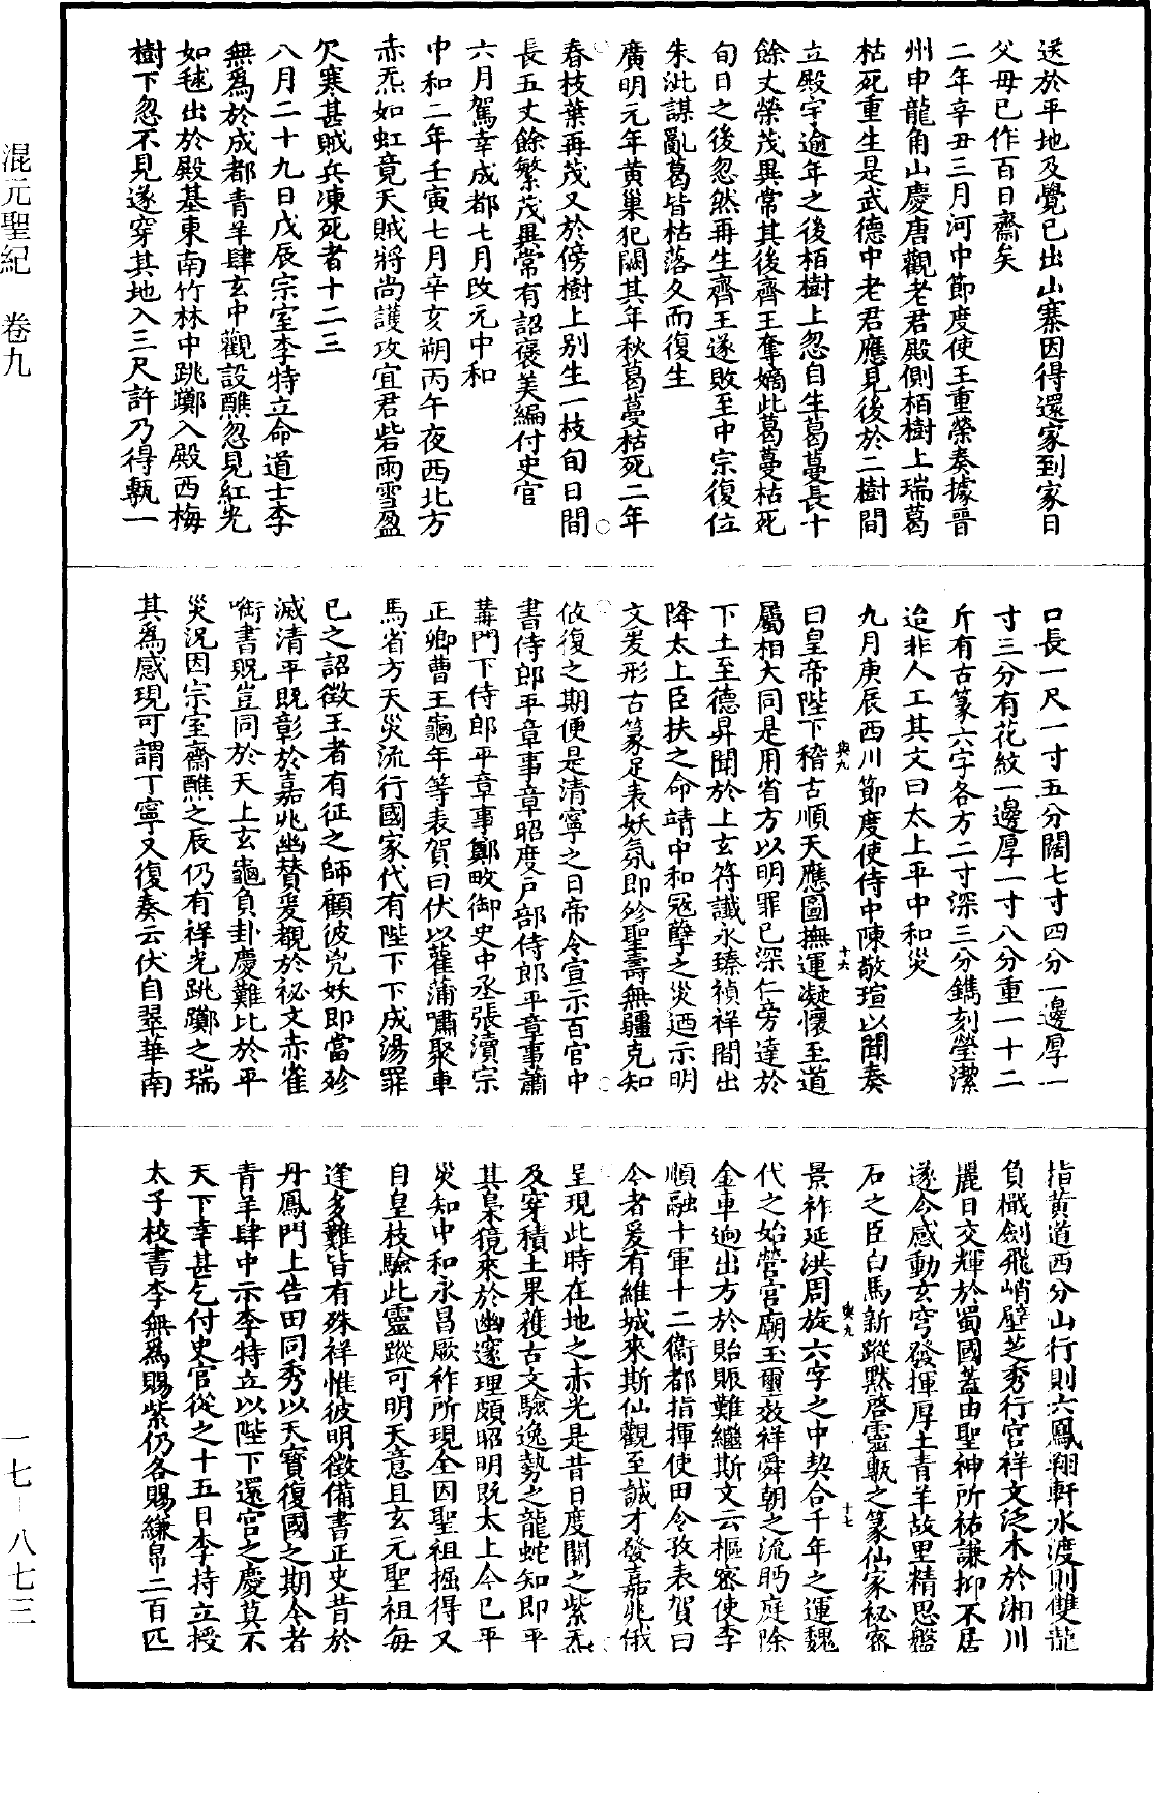 送於平地及覺已出山寨因得還家到家日
父毋已作百日齋矣
二年辛丑三月河中節度使王重榮奏據晉
州申龍角山慶唐觀老君殿側栢樹上瑞葛
枯死重生是武德中老君應見後於二樹間
立殿宇逾年之後栢樹上忽自生葛蔓長十
餘丈榮茂異常其後齊王奪嫡此葛蔓枯死
旬日之後忽然再生齊王遂敗至中宗復位
朱泚謀亂葛皆枯落久而復生
廣明元年黃巢犯闕其年秋葛蔓枯死二年
春枝葉再茂又於傍樹上别生一枝旬日間
長五丈餘繁茂異常有詔褒美編付史官
六月駕幸成都七月改元中和
中和二年壬寅七月辛亥朔丙午夜西北方
赤炁如虹竟天賊將尚讓攻宜君砦雨雪盈
尺寒甚賊兵凍死者十二三
八月二十九日戊辰宗室李特立命道士李
無爲於成都青羊肆玄中觀設醮忽見紅光
如毬出於殿基東南竹林中跳躑入殿西梅
樹下忽不見遂穿其地入三尺許乃得甎一
口長一尺一寸五分闊七寸四分一邊厚一
寸三分有花紋一邊厚一寸八分重一十二
斤有古篆六字各方二寸深三分鐫刻瑩潔
迨非人工其文曰太上平中和災
九月庚辰西川節度使侍中陳敬瑄以聞奏
與九
十六
曰皇帝陛下稽古順天應圖撫運凝懷至道
屬相大同是用省方以明罪已深仁旁達於
下土至德昇聞於上玄符讖永臻禎祥間出
降太上臣扶之命靖中和寇孽之災迺示明
文爰形古篆足表妖氛即殄聖壽無疆克知
攸復之期便是清寧之日帝令宣示百官中
書侍郎平章事韋昭度户部侍郎平章事蕭
遘門下侍郎平章事鄭畋御史中丞張瀆宗
正卿曹王龜年等表賀曰伏以萑蒲嘯聚車
馬省方天災流行國家代有陛下下成湯罪
已之詔徵王者有征之師顧彼兇妖即當殄
滅清平既彰於嘉兆幽賛爰覩於祕文赤雀
銜書既豈同於天上玄龜負卦慶難比於平
災況因宗室齋醮之辰仍有祥光跳躑之瑞
其爲感現可謂丁寧又復奏云伏自翠華南
指黄道西分山行則六鳳翔軒水渡則雙龍
負檝劍飛峭壁芝秀行宫祥文泛木於湘川
麗日交輝於蜀國蓋由聖神所祐謙抑不居
遂令感動玄穹發揮厚土青羊故里精思盤
石之臣白馬新蹤默啓靈甎之篆仙家祕密
與九
十七
景祚延洪周旋六字之中契合千年之運魏
代之始營宫廟玉璽效祥舜朝之流眄庭除
金車逈出方於貽賑難繼斯文云樞密使李
順融十軍十二衛都指揮使田令孜表賀曰
今者爰有維城來斯仙觀至誠才發嘉兆俄
呈現此時在地之赤光是昔日度關之紫炁
及穿積土果獲古文驗逸勢之龍蛇知即平
其梟獍來於幽邃理頗昭明既太上今已平
災知中和永昌厥祚所現全因聖祖掘得又
自皇枝驗此靈蹤可明天意且玄元聖祖每
逢多難皆有殊祥惟彼明徵備書正史昔於
丹鳳門上告田同秀以天寶復國之期今者
青羊肆中示李特立以陛下還宫之慶莫不
天下幸甚乞付史官從之十五日李特立授
太子校書李無爲賜紫仍各賜縑帛二百匹
混元聖紀　卷九
一七－八七三